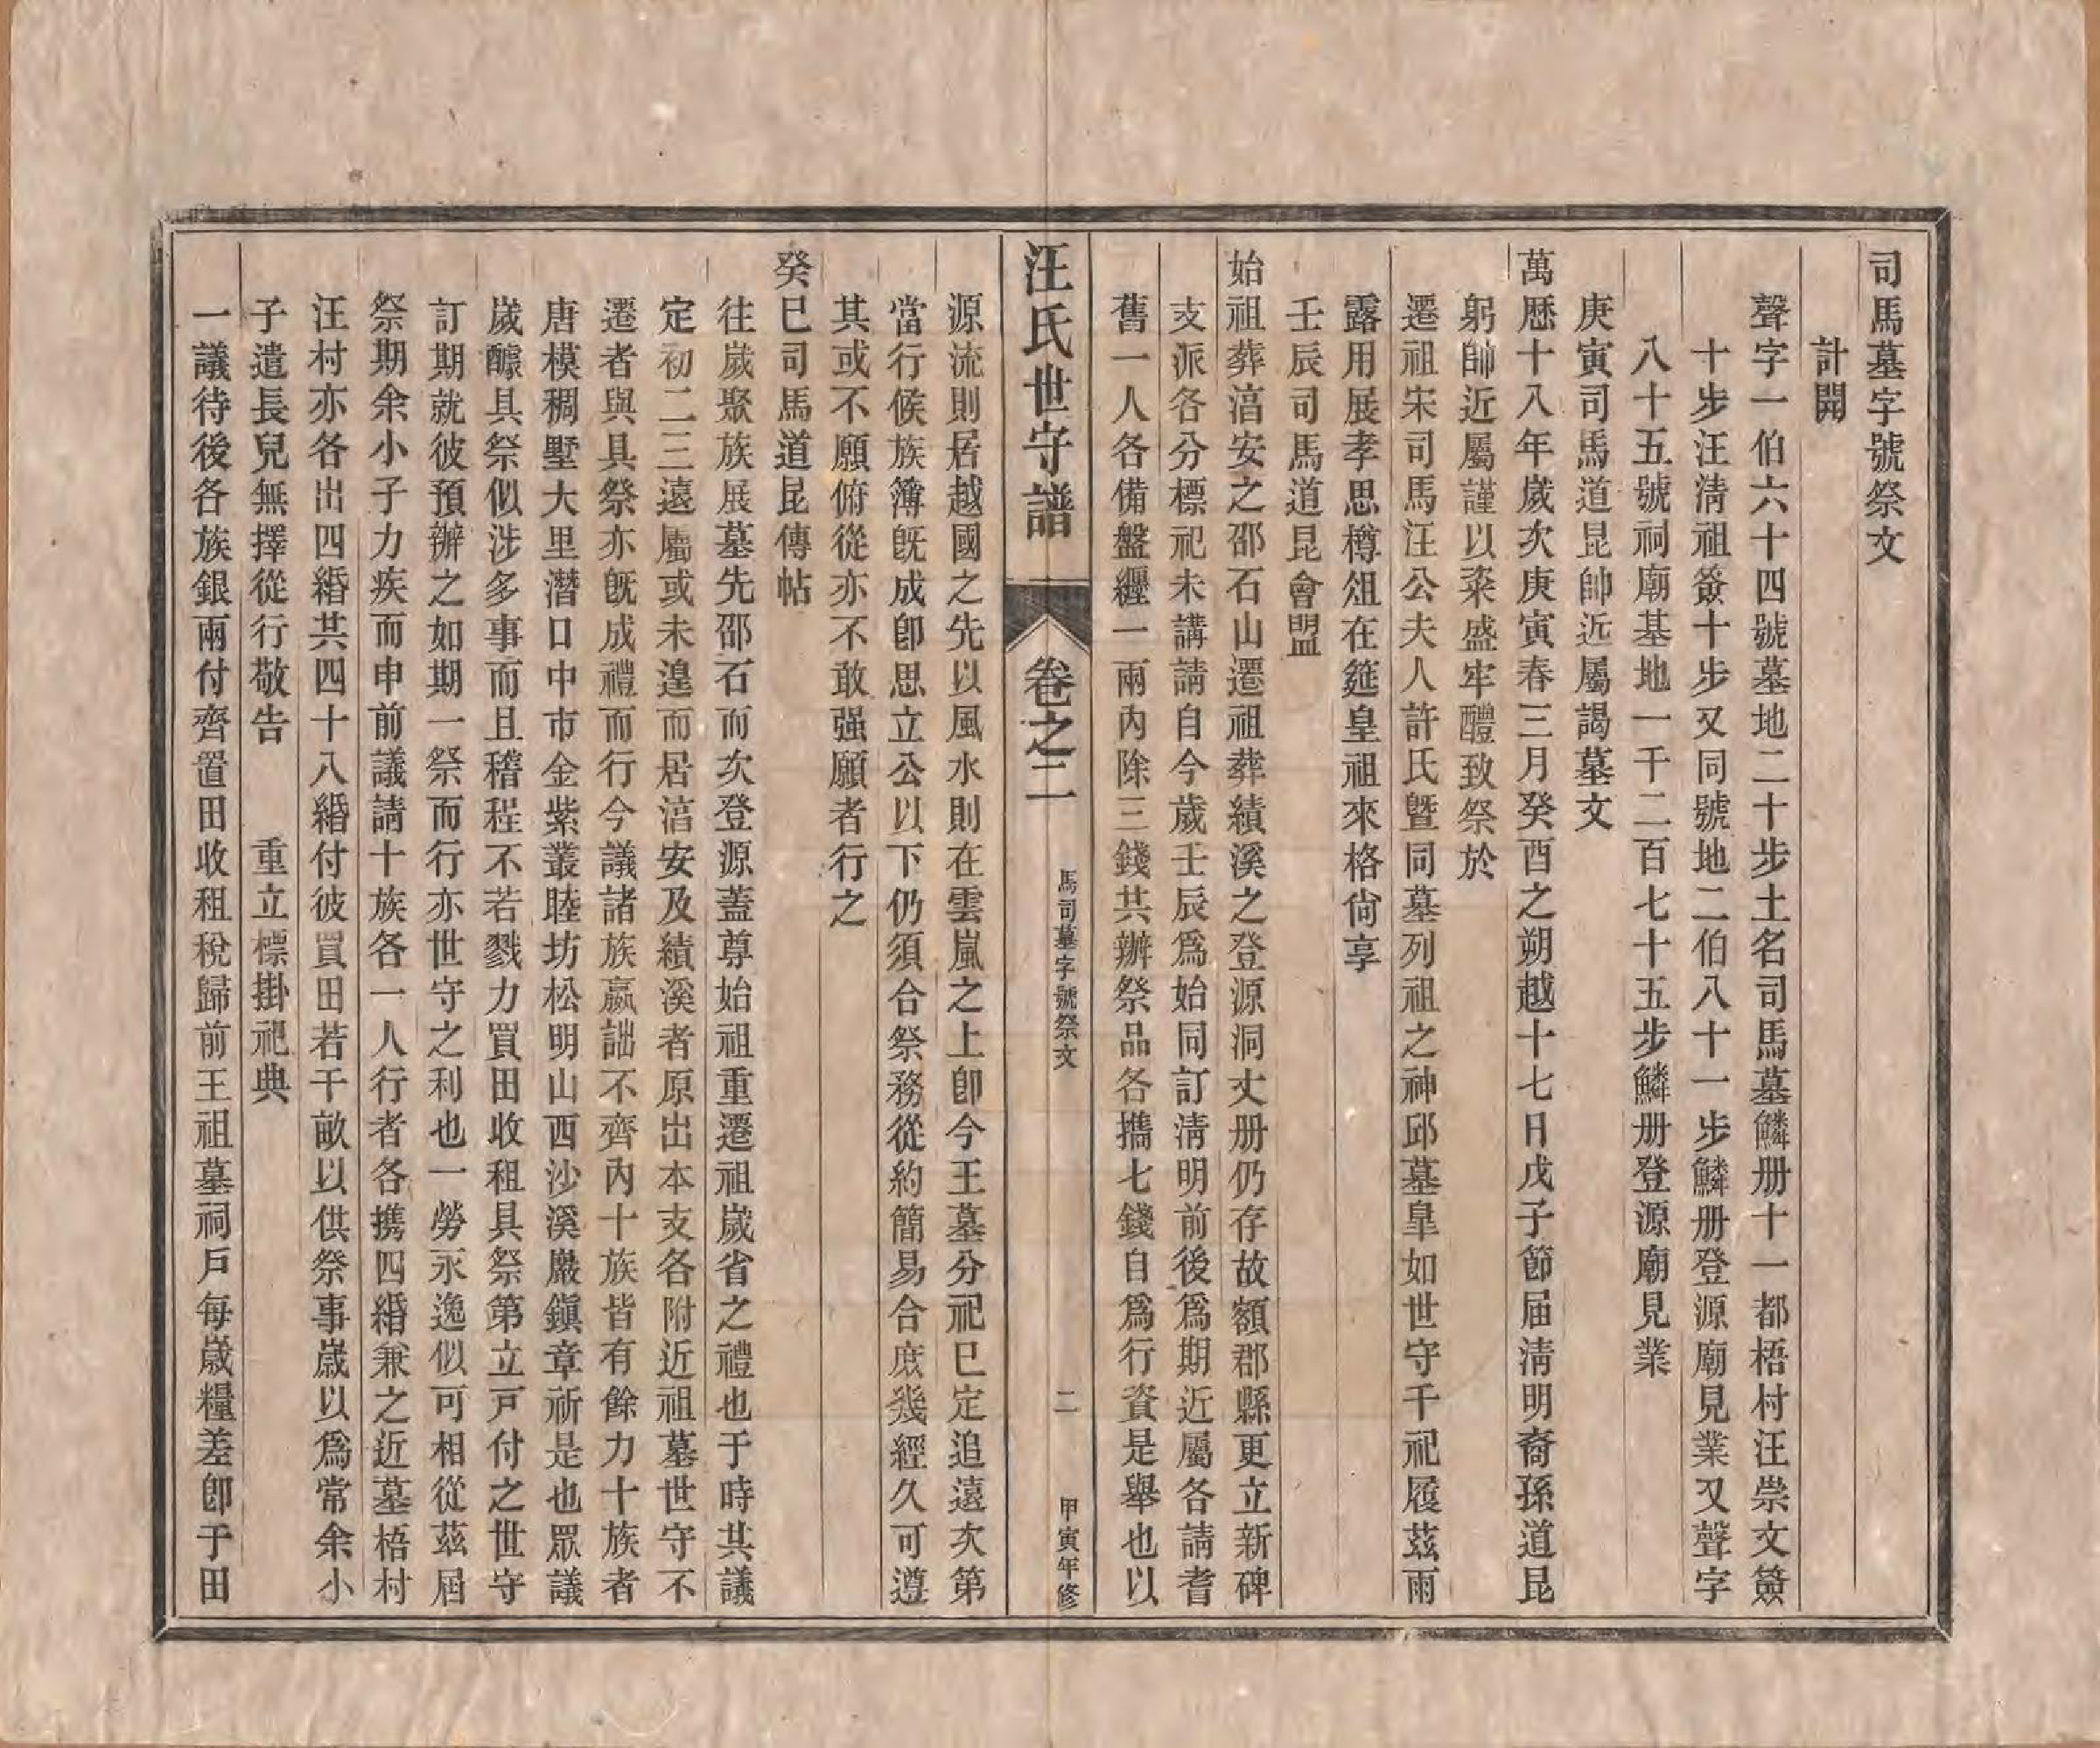 司馬墓字號祭文
計開
聲字一伯六十四號墓地二十步土名司馬墓鱗册十一都梧村汪崇文簽
十步汪淸祖簽十步又同號地二伯八十一步鱗册登源廟見業又聲字
八十五號祠廟基地一千二百七十五步鱗册登源廟見業
庚寅司馬道昆帥近屬謁墓文
萬歷十八年歲次庚寅春三月癸酉之朔越十七日戊子節届淸明裔孫道昆
躬帥近屬謹以粢盛牢醴致祭於
遷祖宋司馬汪公夫人許氏曁同墓列祖之神邱墓皐如世守千祀履茲雨
露用展孝思樽俎在筵皇祖來格尙享
壬辰司馬道昆會盟
始祖葬㴰安之邵石山遷祖葬績溪之登源洞丈册仍存故額郡縣更立新碑
支派各分標祀未講請自今歲壬辰爲始同訂淸明前後爲期近屬各請耆
舊一人各備盤纒一兩內除三錢共辦祭品各攜七錢自爲行資是舉也以
汪氏世守譜 卷之二 馬司墓字號祭文 二 甲寅年修
源流則居越國之先以風水則在雲嵐之上卽今王墓分祀巳定追遠次第
當行候族簿旣成卽思立公以下仍須合祭務從約簡易合庶幾經久可遵
其或不願俯從亦不敢强願者行之
癸巳司馬道昆傳帖
往歲聚族展墓先邵石而次登源蓋尊始祖重遷祖歲省之禮也于時共議
定初二三遠屬或未遑而居㴰安及績溪者原出本支各附近祖墓世守不
遷者與具祭亦旣成禮而行今議諸族嬴詘不齊內十族皆有餘力十族者
唐模稠墅大里潛口中市金紫叢睦坊松明山西沙溪巖鎭章祈是也眾議
歲醵具祭似涉多事而且稽程不若戮力買田收租具祭第立戸付之世守
訂期就彼預辦之如期一祭而行亦世守之利也一勞永逸似可相從茲屆
祭期余小子力疾而申前議請十族各一人行者各携四緡兼之近墓梧村
汪村亦各出四緡共四十八緡付彼買田若干畝以供祭事歲以爲常余小
子遣長兒無擇從行敬告 重立標掛祀典
一議待後各族銀兩付齊置田收租稅歸前王祖墓祠戶每歲糧差卽于田